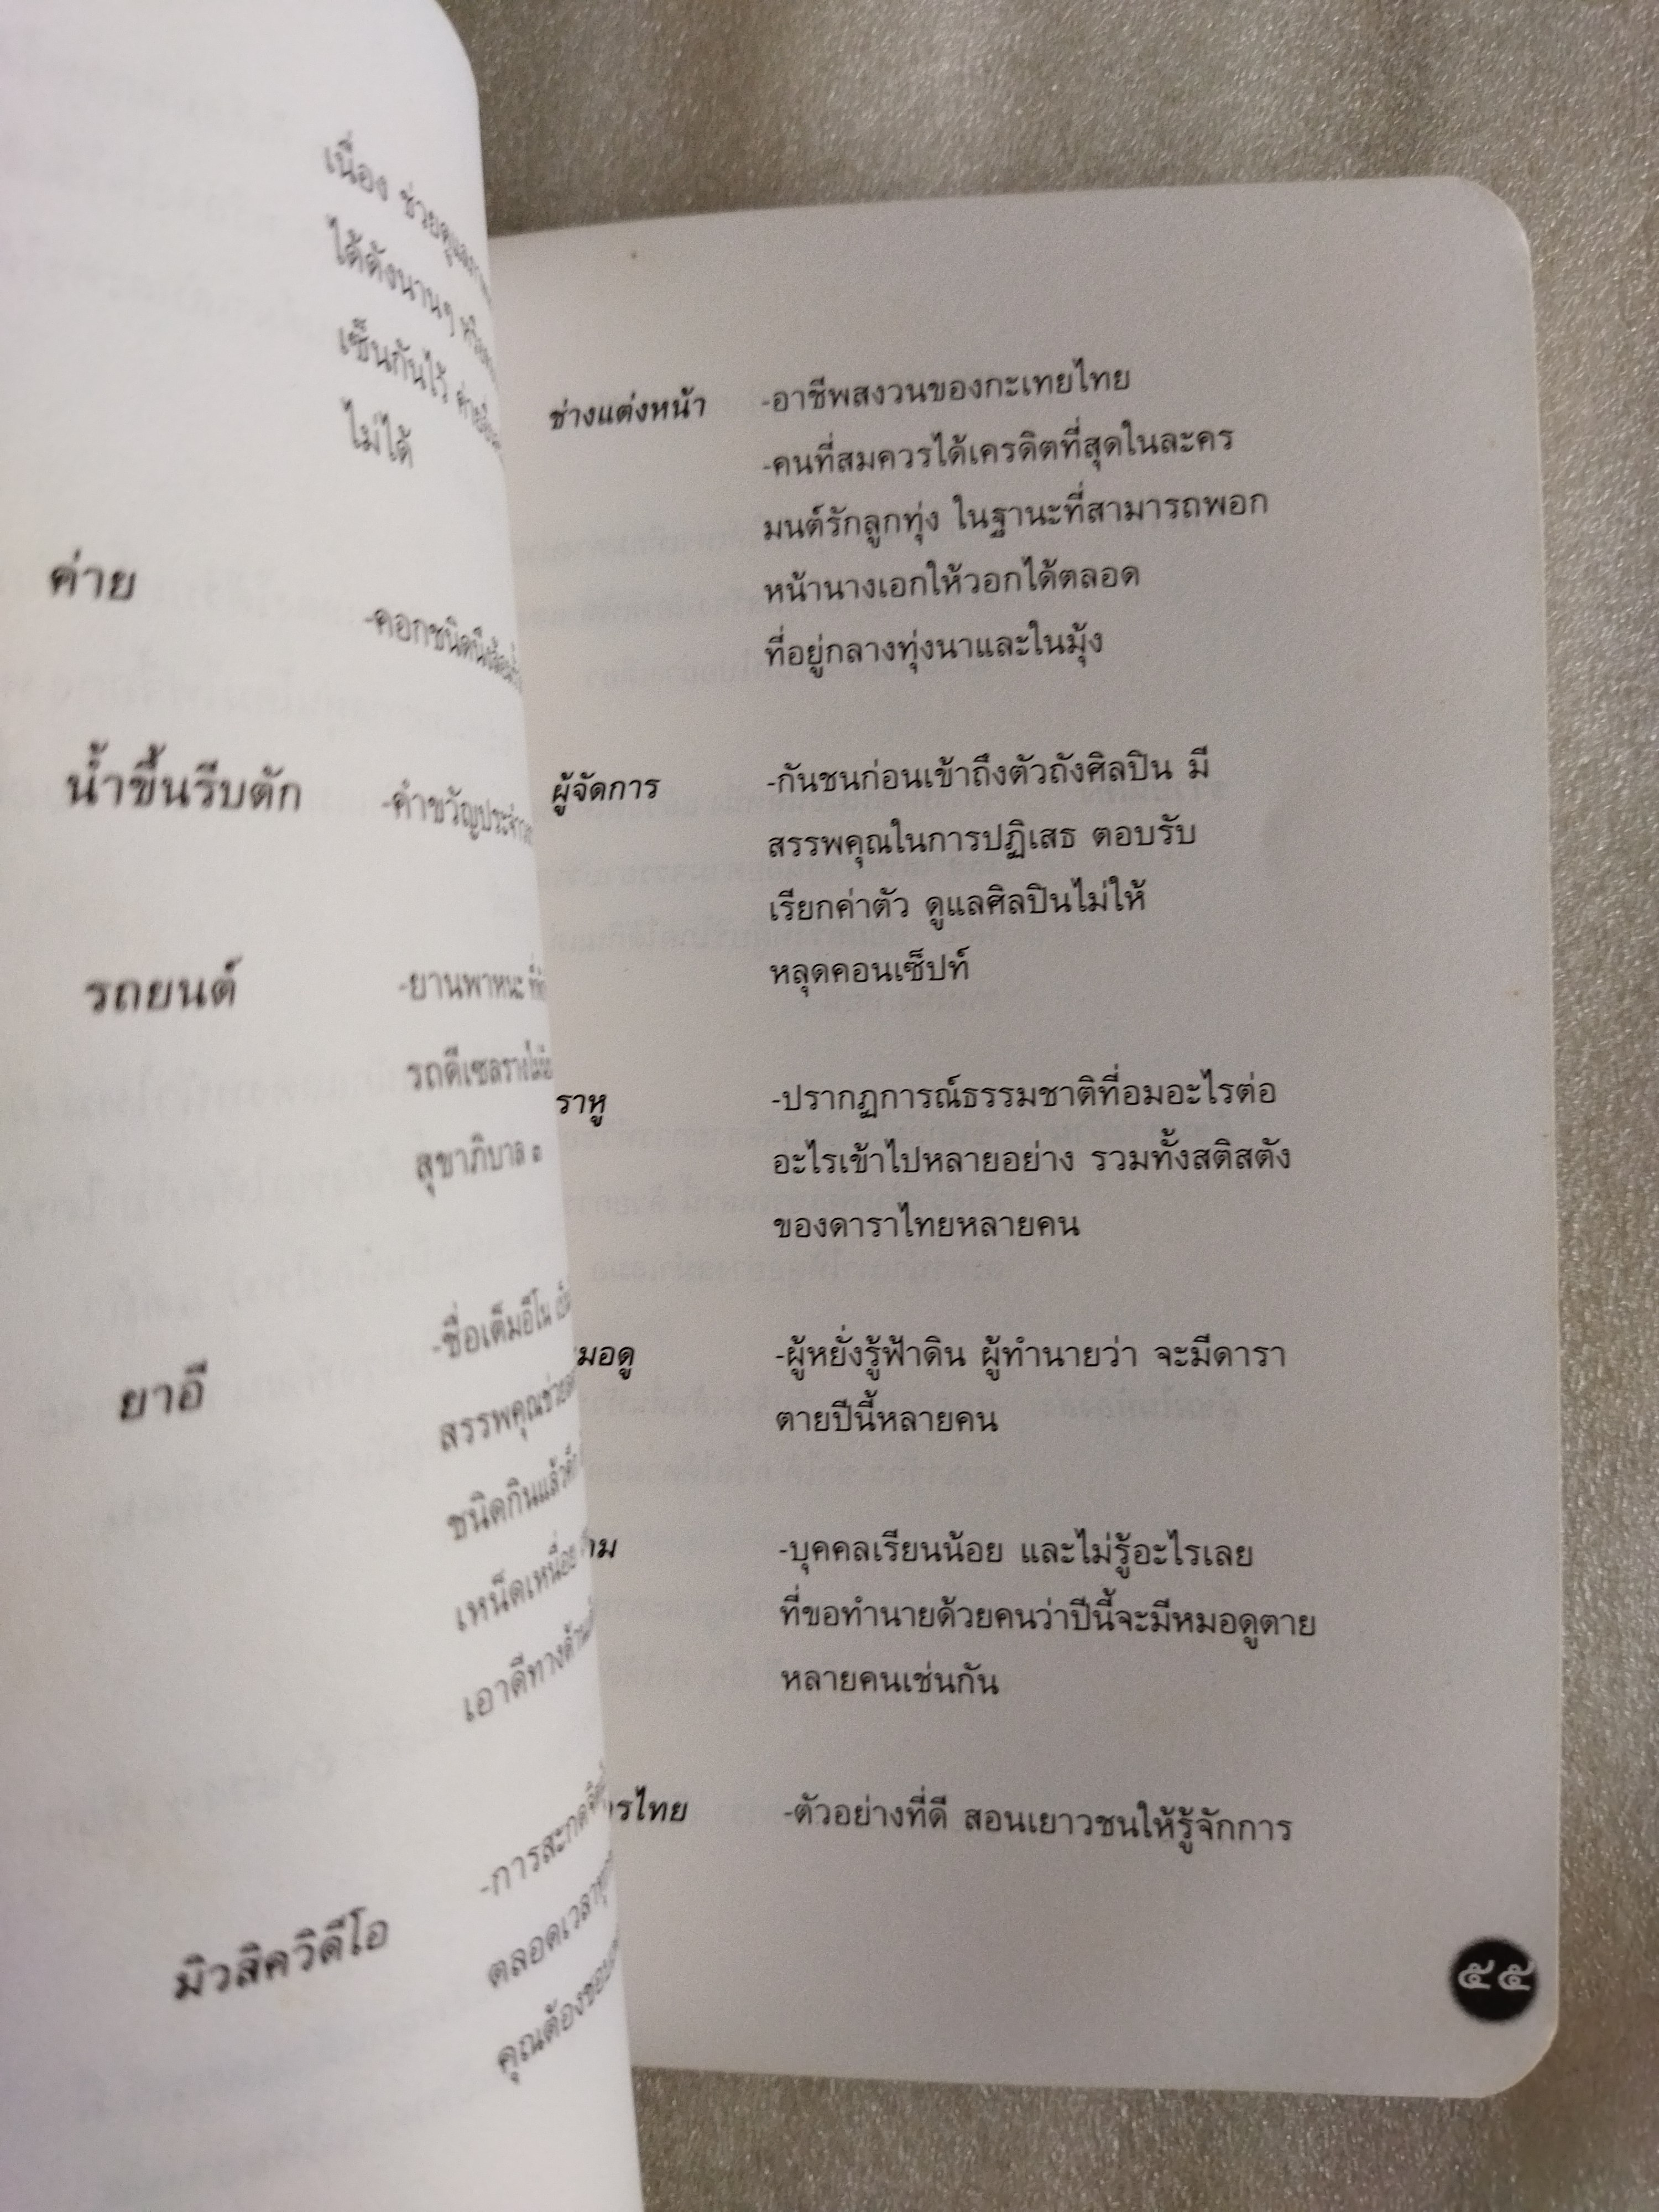 เนื่อง ช่วยดูแล
ได้ดังนานๆ
เซ็นกันไว้
ไม่ได้
ค่าย
-คอกชนิดนึง
น้ำขึ้นรีบตัก -คำขวัญประจำ
รถยนต์ -ยานพาหนะ
รถดีเซลราง
สุขาภิบาล ๓
ยาอี -ชื่อเต็มอีโน
สรรพคุณช่วย
ชนิดกินแล้ว
เหน็ดเหนื่อย
เอาดีทางด้าน
มิวสิควิดีโอ -การสะกดจิต
ตลอดเวลา
คุณต้องชอบ
ช่างแต่งหน้า -อาชีพสงวนของกะเทยไทย
-คนที่สมควรได้เครดิตที่สุดในละคร
มนต์รักลูกทุ่ง ในฐานะที่สามารถพอก
หน้านางเอกให้วอกได้ตลอด
ที่อยู่กลางทุ่งนาและในมุ้ง
ผู้จัดการ -กันชนก่อนเข้าถึงตัวถังศิลปิน มี
สรรพคุณในการปฏิเสธ ตอบรับ
เรียกค่าตัว ดูแลศิลปินไม่ให้
หลุดคอนเซ็ปท์
ราหู -ปรากฏการณ์ธรรมชาติที่อมอะไรต่อ
อะไรเข้าไปหลายอย่าง รวมทั้งสติสตัง
ของดาราไทยหลายคน
มอดู -ผู้หยั่งรู้ฟ้าดิน ผู้ทำนายว่า จะมีดารา
ตายปีนี้หลายคน
-บุคคลเรียนน้อย และไม่รู้อะไรเลย
ที่ขอทำนายด้วยคนว่าปีนี้จะมีหมอดูตาย
หลายคนเช่นกัน
รไทย -ตัวอย่างที่ดี สอนเยาวชนให้รู้จักการ
๕๕